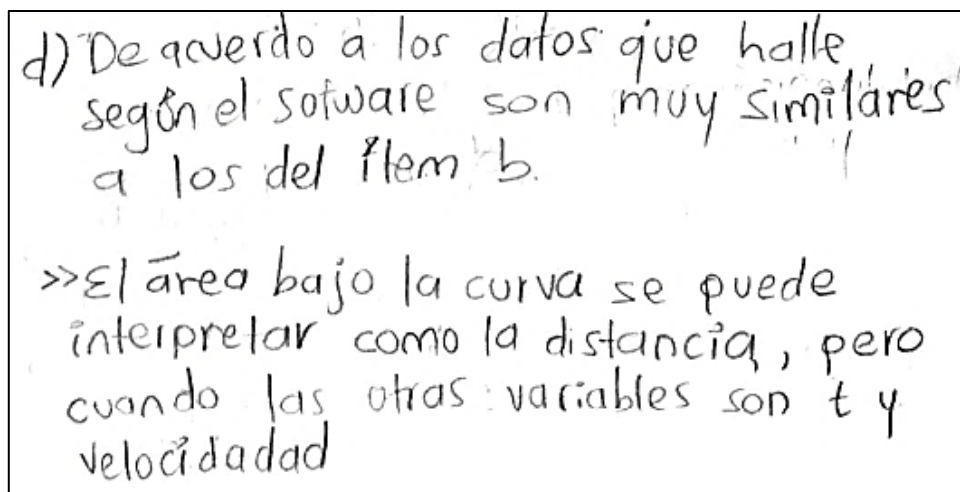 d) De acuerdo a los datos que halle
según el sotware son muy similares
a los del ítem b.
>>El área bajo la curva se puede
interpretar como la distancia, pero
cuando las otras variables son t y
velocidadad